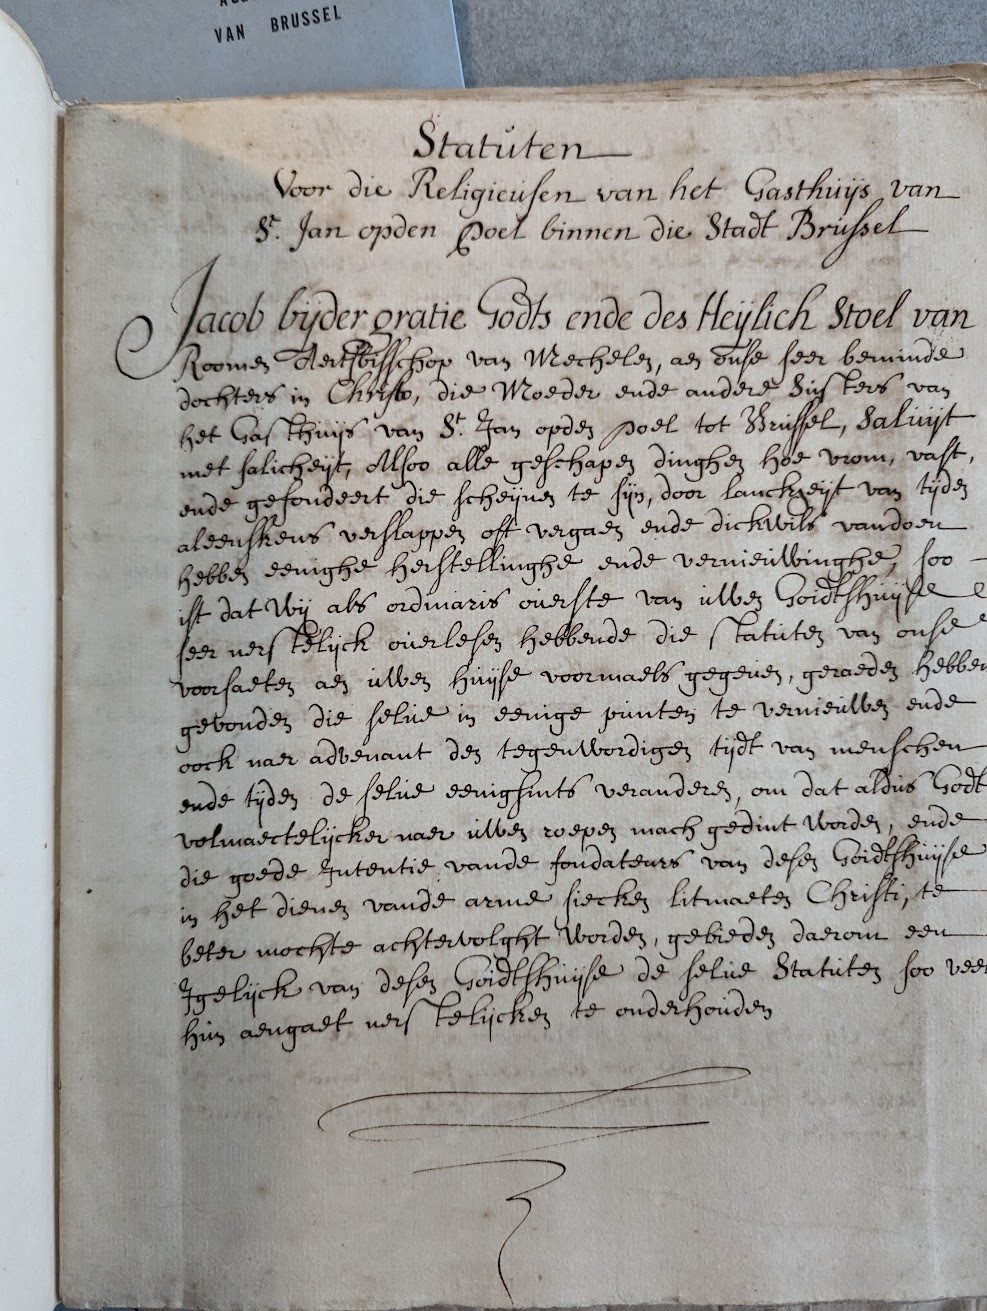 VAN BRUSSEL
Statuten
Voor die Religieusen van het Gasthuijs van
St. Jan opden Poel binnen die Stadt Brussel
Jacob bijder gratie Godts ende des Heijlich Stoel van
Roomen Aertsbisschop van Mechelen, aen onse seer beminde
dochters in Christo, die Moeder ende andere Susters van
het Gasthuijs van St. Jan opden poel tot Brussel, Saluijt
met salicheijt, Alsoo alle geschapen dinghen hoe vrom, vast,
ende gefondeert die scheijnen te sijn, door lanckheijt van tijden
aleenskens verslappen oft vergaen ende dickwils vandoen
hebben eenighe herstellinghe ende vernieuwinghe, soo
ist dat Wij als ordinaris ouerste van uwen Goidtshuijse
seer nerstelijck ouerlesen hebbende die statuten van onse
voorsaeten aen uwen huijse voormaels gegeuen, geraeden hebben
gevonden die selue in eenige punten te vernieuwen ende
oock naer advenant den tegenwordigen tijdt van menschen
ende tijden de selue eenighsints veranderen, om dat aldus Godt
volmaectelijcker naer uwen roepen mach gedint worden, ende
die goede Intentie vande fondateurs van desen Goidtshuijse
in het dienen vande arme siecken litmaeten Christi, te
beter mochte achtervolght worden, gebieden daerom een
Igelijck van desen Goidtshuijse de selue Statuten soo veel
hun aengaet nerstelijcken te onderhouden